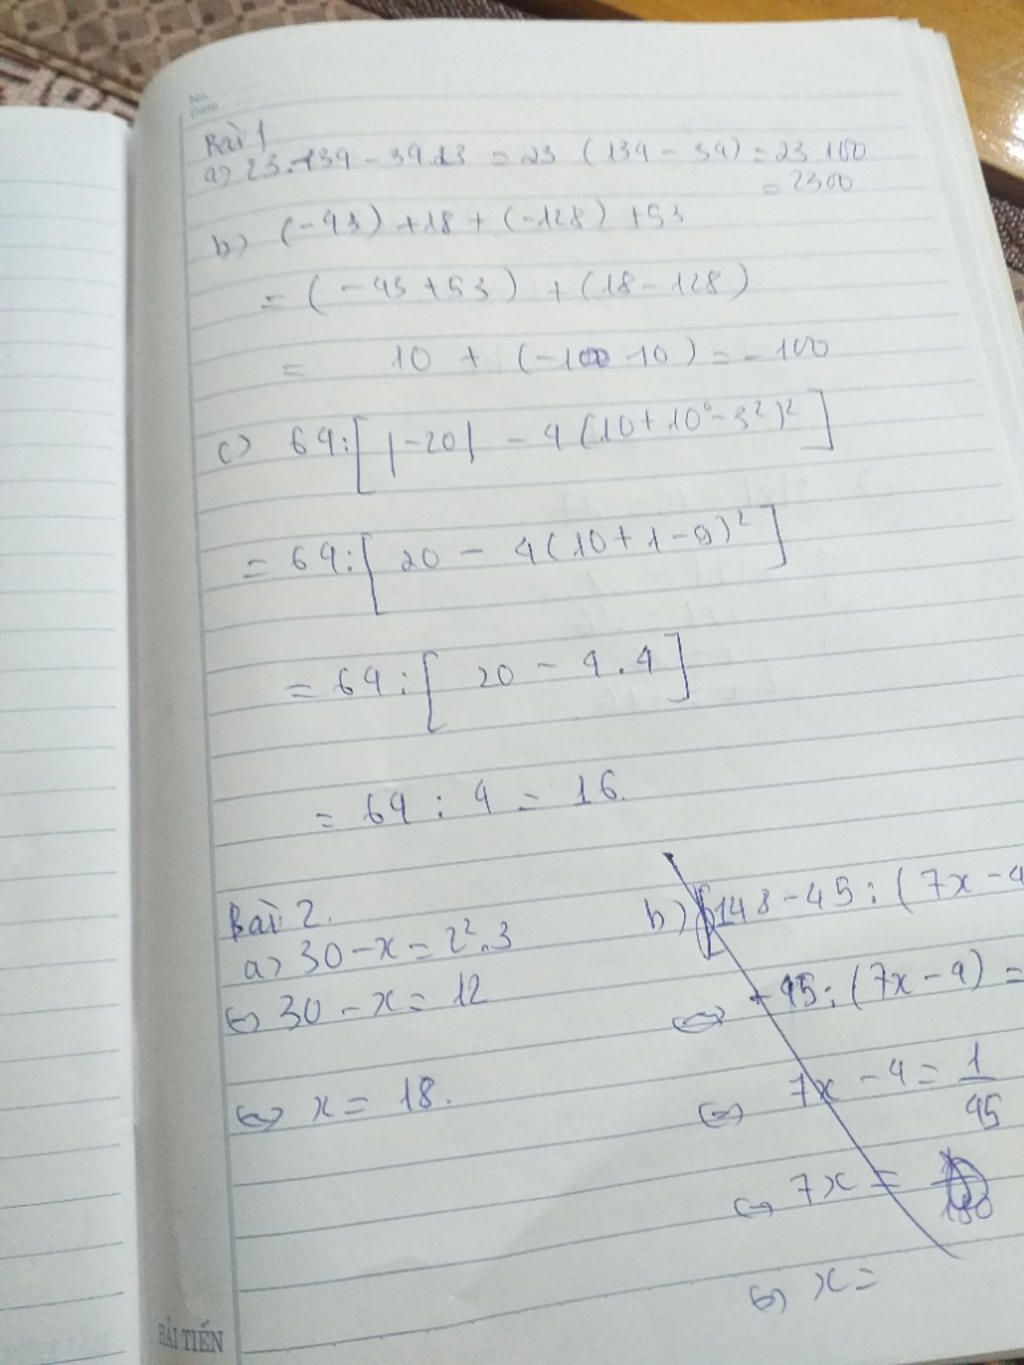 No.
Date
Bài 1
a) 23.134 - 34.23 = 23 (134 - 34) = 23.100
= 2300
b) (-43) + 18 + (-128) + 53
= (-43 + 53) + (18 - 128)
= 10 + (-100 - 10) = -100
c) 64 : [ |-20| - 4 (10 + 10⁰ - 3²)² ]
= 64 : [ 20 - 4 (10 + 1 - 9)² ]
= 64 : [ 20 - 4 . 4 ]
= 64 : 4 = 16.
Bài 2.
a) 30 - x = 2².3
⇔ 30 - x = 12
⇔ x = 18.
b) 148 - 45 : (7x - 4
⇔ 45 : (7x - 4) =
⇔ 7x - 4 = 1/45
⇔ 7x =
⇔ x =
HẢI TIẾN